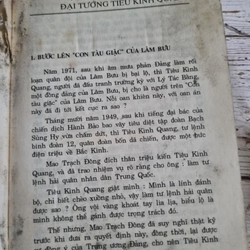 ĐẠI TƯỚNG TIÊU KINH QUANG
1. BƯỚC LÊN "CON TÀU GIẶC" CỦA LÂM BƯU
Năm 1971, sau khi âm mưu phản Đảng làm rối
loạn quân đội của Lâm Bưu bị bại lộ, thì Tiêu Kinh
Quang đang dưỡng bệnh trong trường kỳ với Lý Tác Bằng,
một đồng đảng của Lâm Bưu, bị họ cho là người trên "Con
tàu giặc" của Lâm Bưu. Nỗi oan khiên này, với ông
đã đi tới kết cục ra sao?
Tháng mười năm 1949, sau khi tiếng đại bác của
chiến dịch Hành Bảo bao vây diệt tập đoàn Bạch
Sùng Hy vừa chấm dứt, thì Tiêu Kinh Quang, tư lệnh
binh đoàn 12, quân đoàn bốn dã chiến, được một bức
điện triệu về Bắc Kinh.
Mao Trạch Đông đích thân triệu kiến Tiêu Kinh
Quang, và đã trao nhiệm vụ, rõ ràng cho ông: làm tư
lệnh hải quân nhân dân Trung Quốc.
Tiêu Kinh Quang giật mình: Mình là lính đánh
bộ, chỉ biết chèo xuồng nhỏ, vậy làm tư lệnh hải quân
được sao? Ông vội vàng khoát tay lia lịa, biểu lộ là
mình không thể gánh được trọng trách đó.
Thế nhưng, Mao Trạch Đông đã suy nghĩ thật kỹ
trước khi chọn ông, bởi ông từng là một
của Trung ương Đảng, cho nên Tiêu Kinh